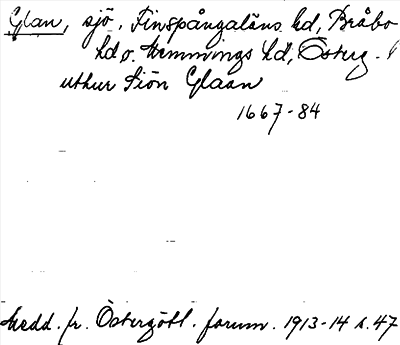 Glan, sjö. Finspångaläns hd, Bråbo
hd o. Memmings hd, Österg. l
uthur Siön Glaan
1667-84
Medd. fr. Östergötl. fornm. 1913-14 s. 47